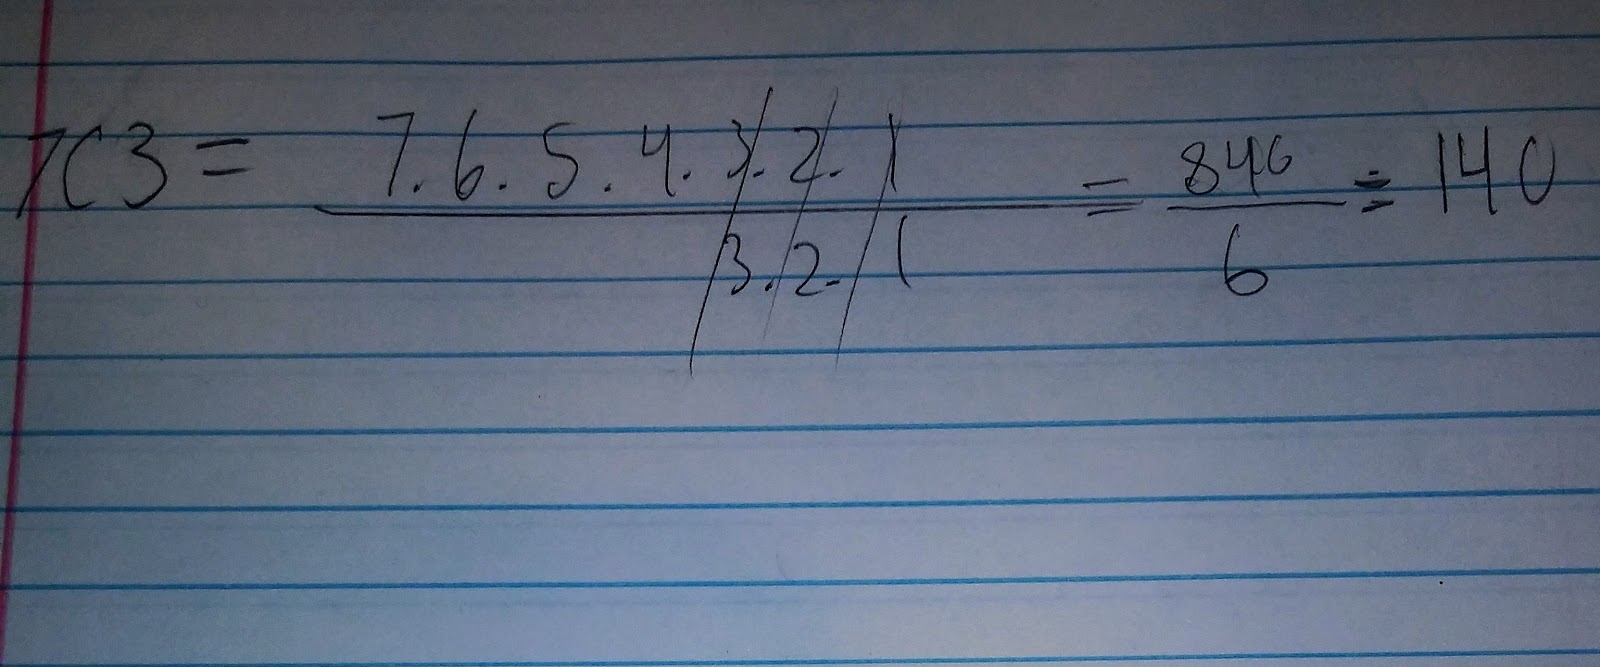 7C3 = 7.6.5.4.3.2.1 / 3.2.1 = 840 / 6 = 140